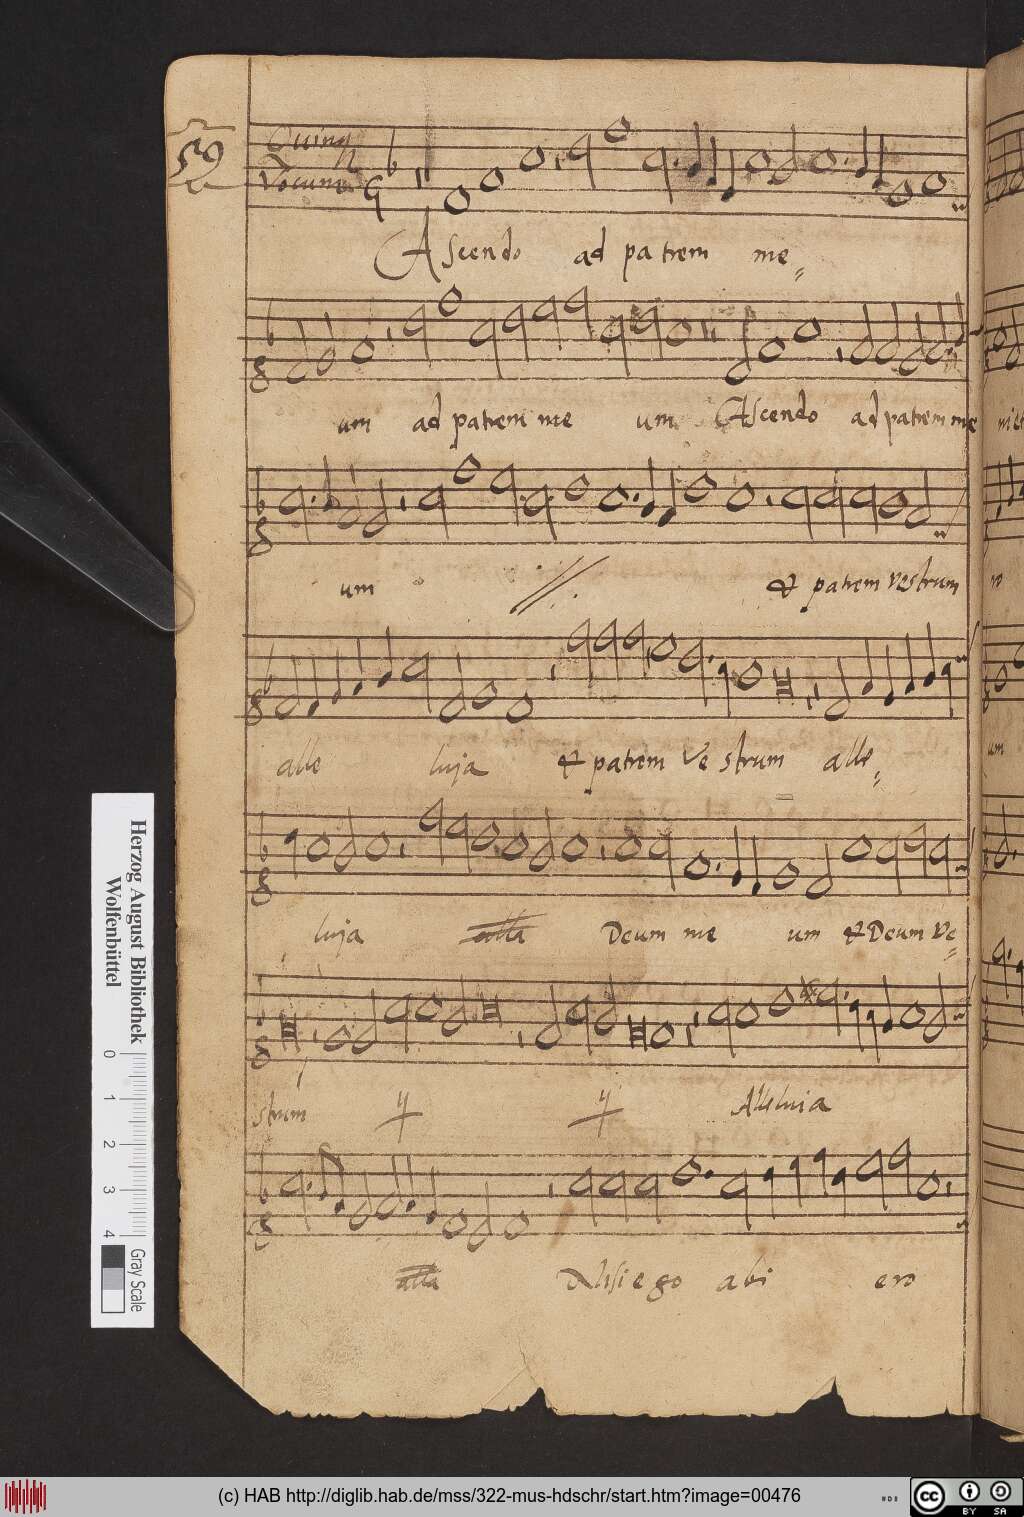 59
Quinq
Vocum
Ascendo ad patrem me=
um ad patrem me um Ascendo ad patrem me
um et patrem vestrum
alle luja et patrem ve strum alle=
luja alla Deum me um et Deum ve=
strum ij ij Alleluia
alla Nisi ego abi ero
um
Herzog August Bibliothek
Wolfenbüttel
0 1 2 3 4
Gray Scale
(c) HAB http://diglib.hab.de/mss/322-mus-hdschr/start.htm?image=00476
cc BY SA